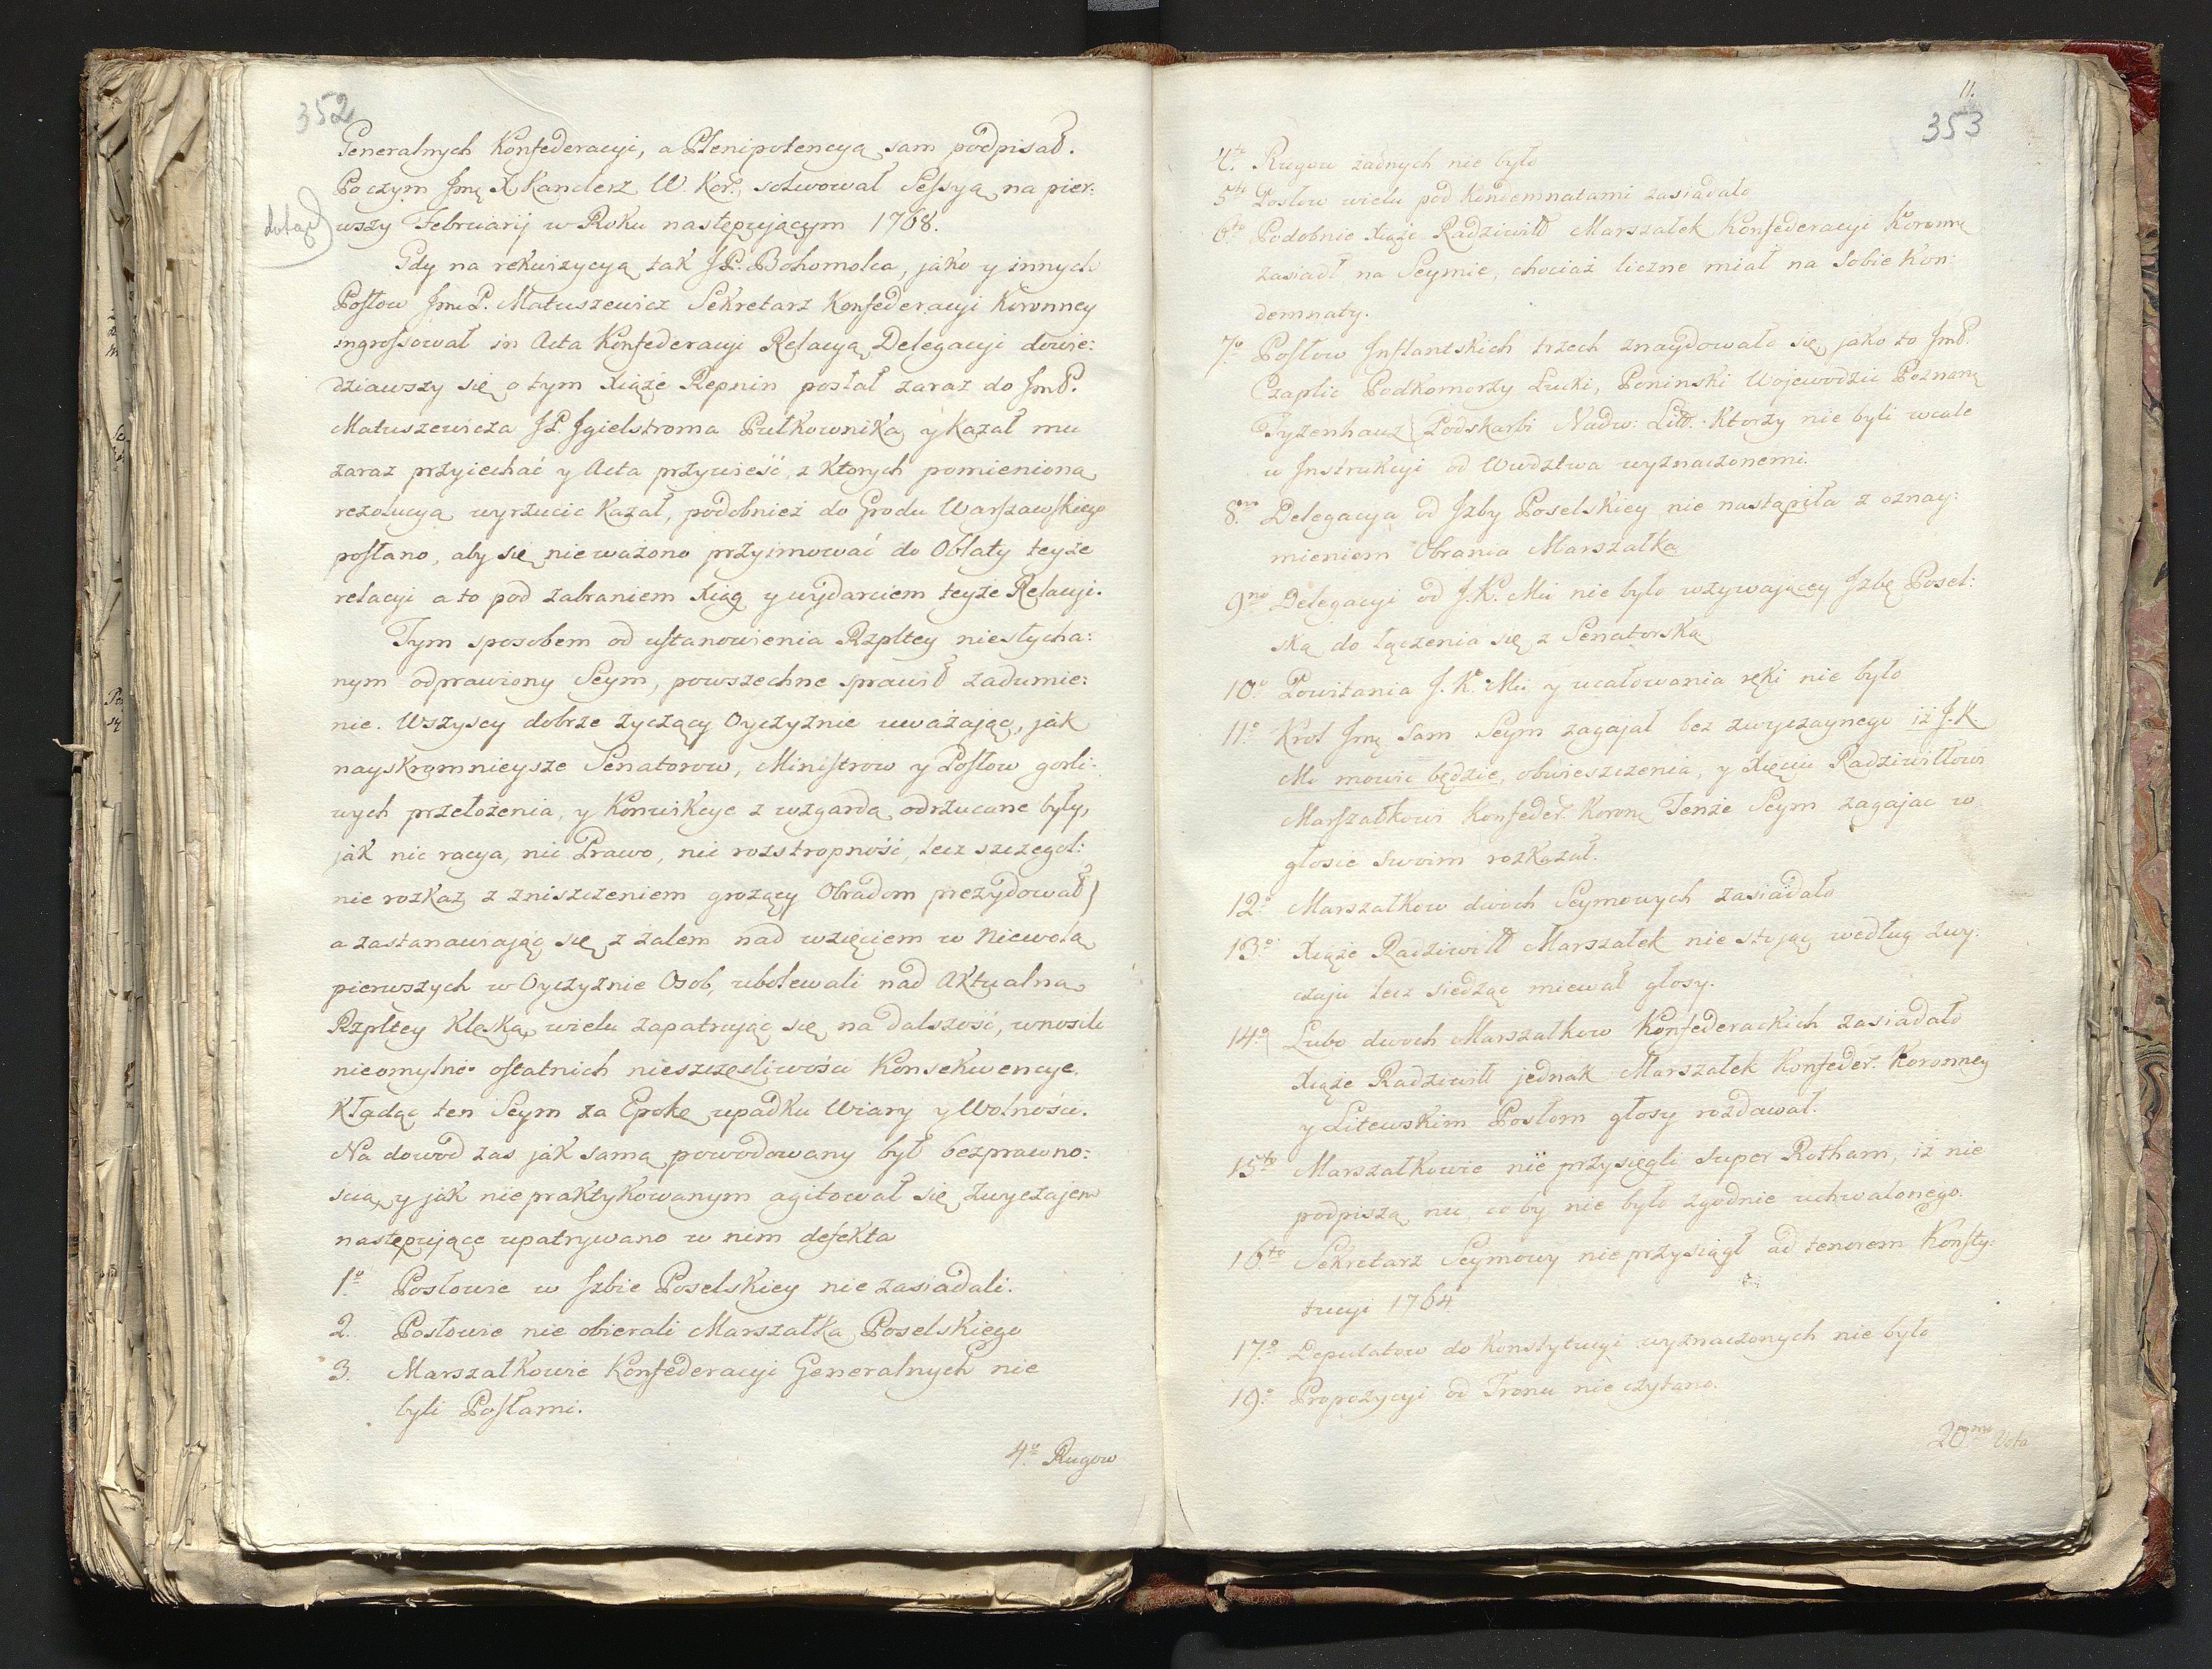 352
Generalnych Konfederacyi, a Plenipotencyą sam podpisał.
Poczym Jmę X Kanclerz W. Kor: solwował Sessyą na pier:
dotąd
wszy Februarij w Roku następującym 1768.
Gdy na rekwizycyą tak JP. Bohomolca, jako y innych
Posłow Jm P. Matuszewicz Sekretarz Konfederacyi Koronney
ingrossował in Acta Konfederacyi Relacyą Delegacyi dowie:
dziawszy się o tym Xiąże Repnin posłał zaraz do JmP.
Matuszewicza JP Jgielstroma Pułkownika y kazał mu
zaraz przyiechać y Acta przywieść, z ktorych pomienioną
rezolucyą wyrzucic kazał, podobnież do Grodu Warszawskiego
posłano, aby się nie ważono przyimować do Oblaty teyże
relacyi a to pod zabraniem Xiąg y wydarciem teyże Relacyi.
Tym sposobem od ustanowienia Rzpltey niesłycha:
nym odprawiony Seym, powszechne sprawił zadumie:
nie. Wszyscy dobrze życzący Oyczyznie uważając, jak
nayskromnieysze Senatorow, Ministrow y Posłow gorli:
wych przełożenia, y Konwikcye z wzgardą odrzucane były,
jak nie racya, nie Prawo, nie rozstropność, lecz szczegol:
nie rozkaz z zniszczeniem grożący Obradom prezydował)
a zastanawiając się z żalem nad wzięciem w Niewolą
pierwszych w Oyczyznie Osob, ubolewali nad Aktualną
Rzpltey Klęską, wielu zapatrując się na dalszość, wnosili
nieomylne ostatnich nieszczęsliwości Konsekwencye.
Kładąc ten Seym za Epokę upadku Wiary y Wolności.
Na dowod zas jak samą powodowany był bezprawno:
scią y jak niepraktykowanym agitował się zwyczajem
następujące upatrywano w nim defekta
1º Posłowie w Jzbie Poselskiey nie zasiadali.
2. Posłowie nie obierali Marszałka Poselskiego
3. Marszałkowie Konfederacyi Generalnych nie
byli Posłami.
4º Rugow
11.
353
4to Rugow żadnych nie było
5to Posłow wielu pod Kondemnatami zasiadało
6to Podobnie Xiąże Radziwiłł Marszałek Konfederacyi Koronney
zasiadł na Seymie, chociaż liczne miał na sobie Kon:
demnaty.
7º Posłow Jnflantskich trzech znaydowało się, jako to JmP.
Czaplic Podkomorzy Łucki, Poninski Wojewodzic Poznanę
Tyzenhauz Podskarbi Nadw: Litt: Ktorzy nie byli wcale
w Jnstrukcyi od Wwdztwa wyznaczonemi.
8vo Delegacya od Jzby Poselskiey nie nastąpiła z oznay:
mieniem Obrania Marszałka
9no Delegacyi od J.K. Mci nie było wzywającey Jzbę Posel:
ską do łączenia się z Senatorską
10º Powitania J. K. Mci y ucałowania ręki nie było
11º Krol Jmę sam Seym zagajał bez zwyczaynego iż J.K.
Mć mowic będzie, obwieszczenia, y Xięciu Radziwiłłowi
Marszałkowi Konfeder: Koronę Tenże Seym zagajac w
głosie swoim rozkazał.
12º Marszałkow dwoch Seymowych zasiadało
13º Xiąże Radziwiłł Marszałek nie stojąc według zwy:
czaju lecz siedząc miewał głosy.
14º Lubo dwoch Marszałkow Konfederackich zasiadało
Xiąże Radziwiłł jednak Marszałek Konfeder: Koronney
y Litewskim Posłom głosy rozdawał.
15to Marszałkowie nie przysięgli super Rotham, iż nie
podpiszą nic, co by nie było zgodnie uchwalonego.
16to Sekretarz Seymowy nie przysiągł ad tenorem Konsty:
tucyi 1764
17º Deputatow do Konstytucyi wyznaczonych nie było
19º Propozycyi od Tronu nie czytano.
20mo Vota